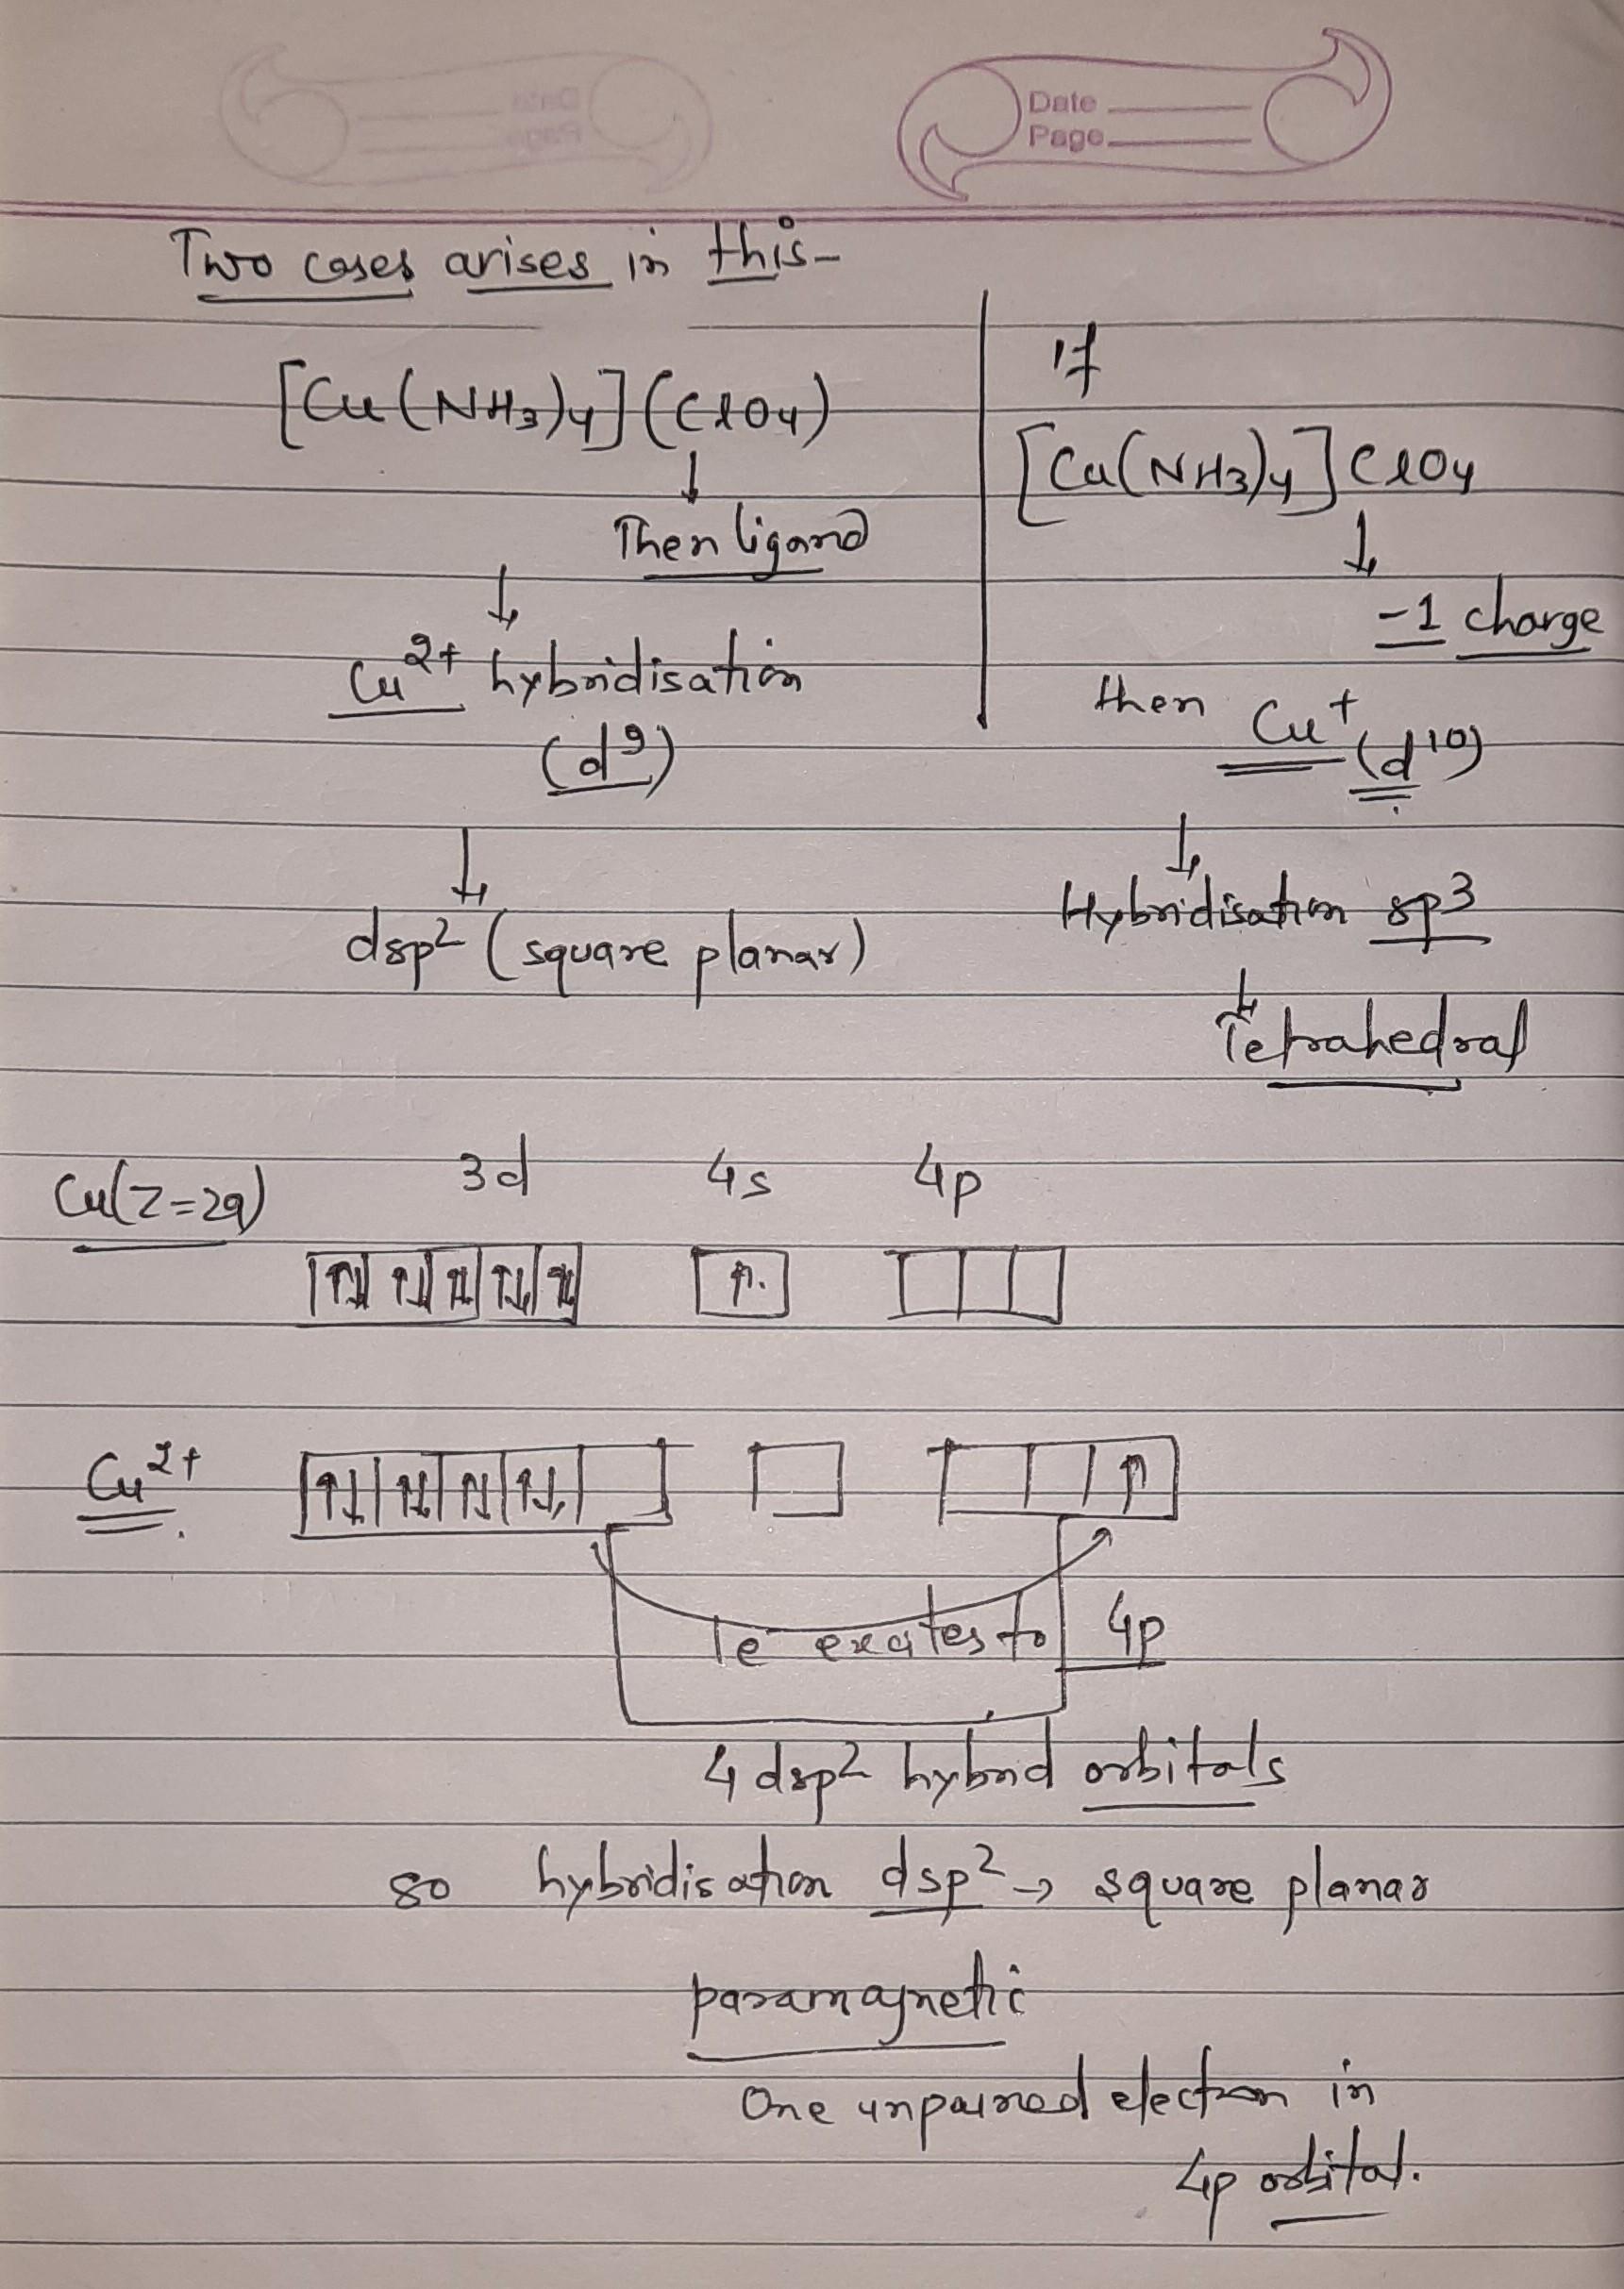 Date
Page
Two cases arises in this-
[Cu(NH3)4](ClO4)
↓
Then ligand
↓
Cu2+ hybridisation
(d9)
↓
dsp2 (square planar)
if
[Cu(NH3)4]ClO4
↓
-1 charge
then Cu+ (d10)
↓
Hybridisation sp3
↓
Tetrahedral
Cu(Z=29) 3d 4s 4p
↑↓ ↑↓ ↑↓ ↑↓ ↑↓ ↑
Cu2+ ↑↓ ↑↓ ↑↓ ↑↓ ↑
1e excites to 4p
4 dsp2 hybrid orbitals
so hybridisation dsp2 → square planar
paramagnetic
One unpaired electron in
4p orbital.